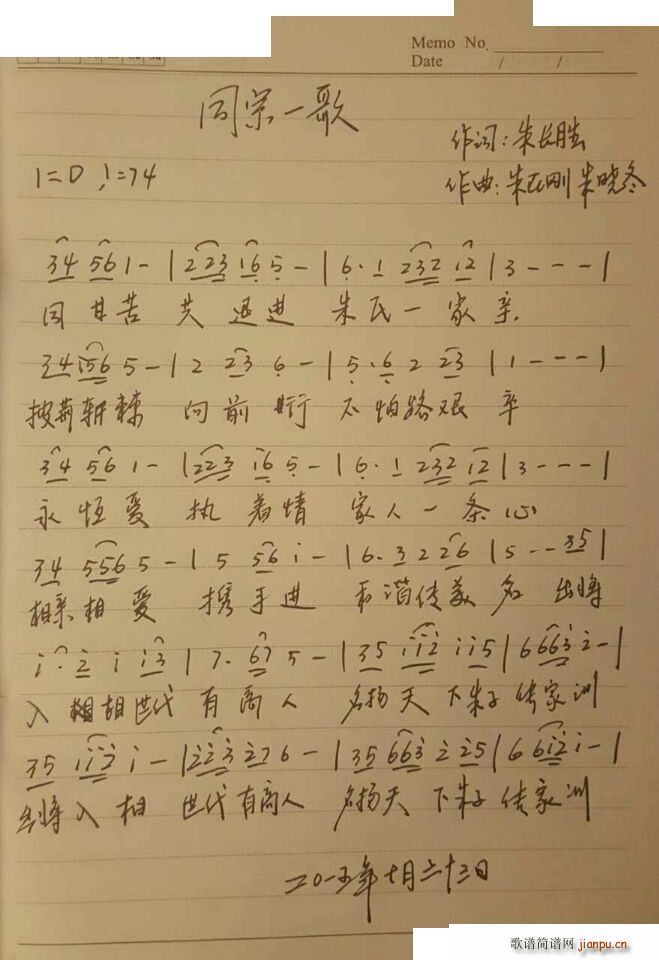 Memo No.
Date / /
同宗一歌
作词:朱长胜
1=D ♩=74
作曲:朱民刚 朱晓冬
34 561- | 223 165- | 6·1 232 12 | 3--- |
同甘苦 共 迈进 朱氏一家亲
34 1565- | 2 23 6- | 5·6 2 23 | 1--- |
披荆斩棘 向前行 不怕路艰辛
34 561- | 223 165- | 6·1 232 12 | 3--- |
永恒爱 执着情 家人一条心
34 5565- | 5 56 i- | 6·3 2 26 | 5--35 |
相亲相爱 携手进 和谐传美名 出将
i·2 i i3 | 7·67 5- | 35 ii2 ii5 | 6663 2- |
入相 世代有高人 名扬天下朱子传家训
35 ii2 i- | 223 276- | 35 663 2 25 | 6 6i2 i- |
出将入相 世代有高人 名扬天下朱子传家训
二〇一五年七月二十三日
歌谱简谱网 jianpu.cn